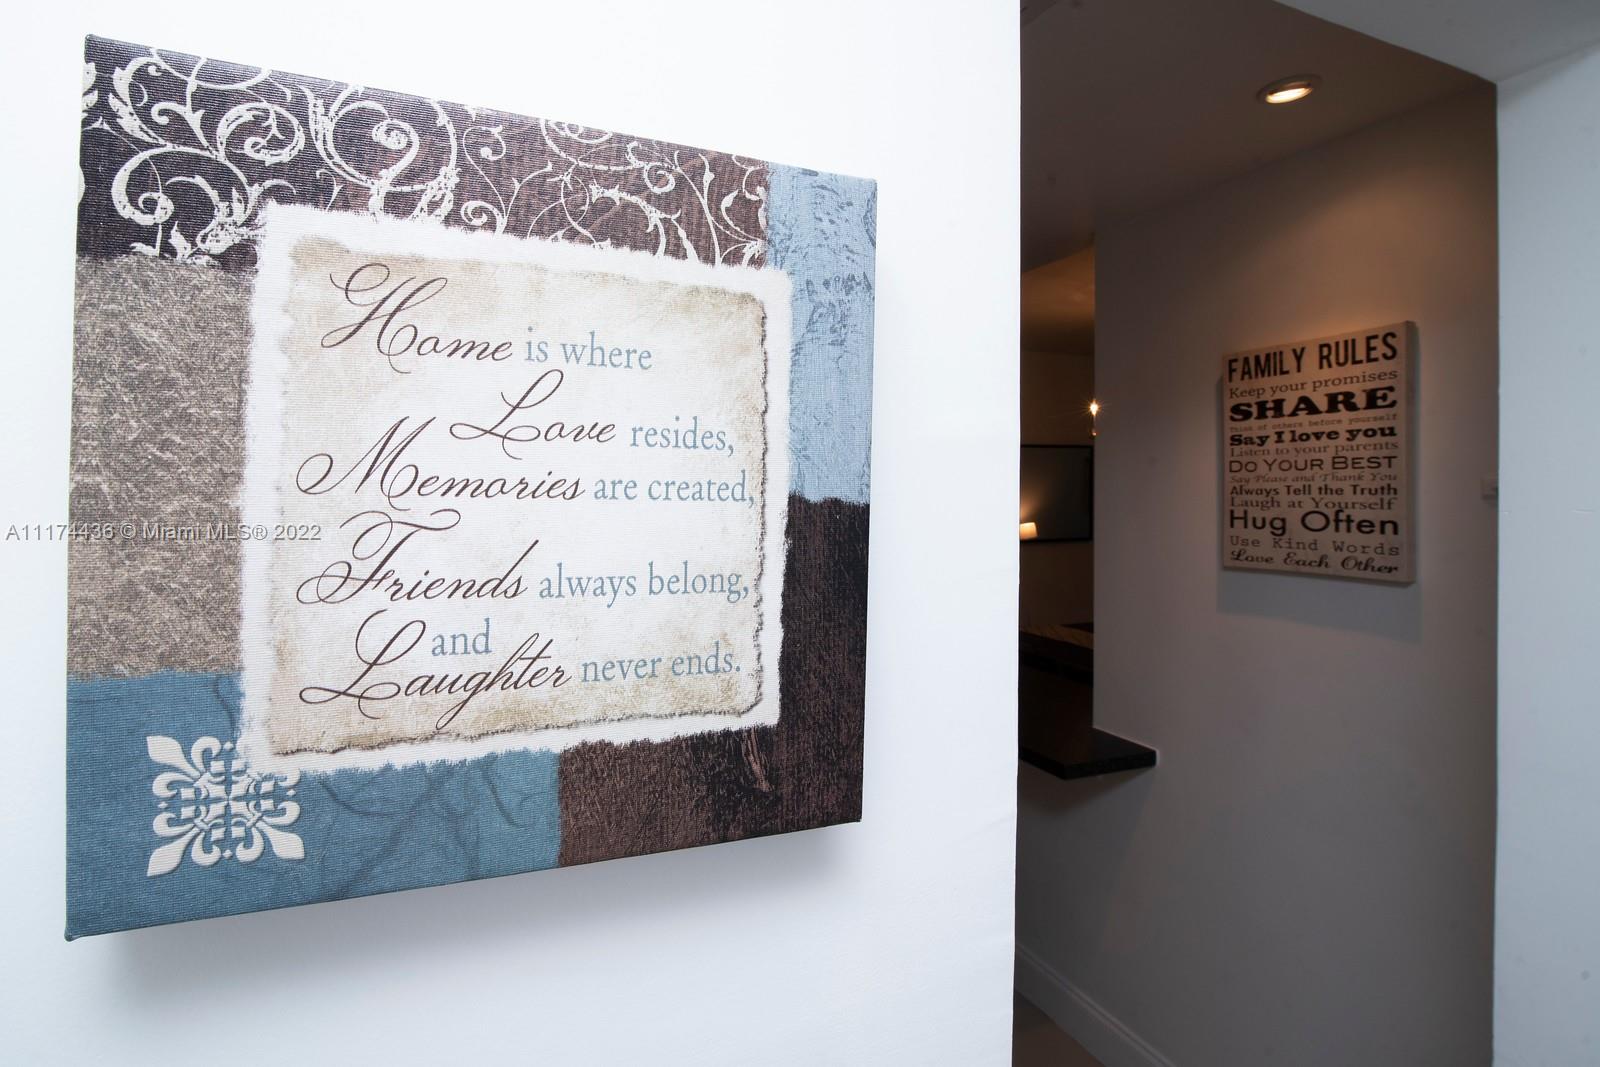 Home is where
Love resides,
Memories are created,
Friends always belong,
and
Laughter never ends.
A11174436 © Miami MLS® 2022
FAMILY RULES
Keep your promises
SHARE
Think of others before yourself
Say I love you
Listen to your parents
DO YOUR BEST
Say Please and Thank You
Always Tell the Truth
Laugh at Yourself
Hug Often
Use Kind Words
Love Each Other